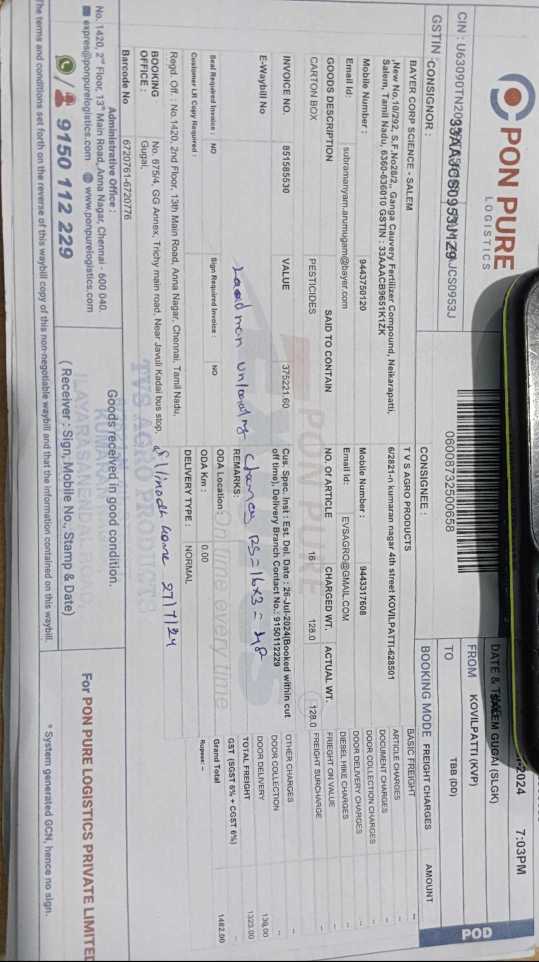 PON PURE
LOGISTICS
CIN : U63090TN20
GSTIN :
33AAJCS0953J1Z9
06008732500658
DATE & T
2024 7:03PM
SALEM GUGAI (SLGK)
FROM KOVILPATTI (KVP)
TO TBB (DD)
BOOKING MODE
POD
CONSIGNOR :
BAYER CORP SCIENCE - SALEM
,New No.10/292, S.F.No28/2,, Ganga Cauvery Fertilizer Compound, Neikarapatti,
Salem, Tamil Nadu, 6360-636010 GSTIN : 33AAACB9651K1ZK
Mobile Number : 9443750120
Email Id : subramanyam.arumugam@bayer.com
CONSIGNEE :
T V S AGRO PRODUCTS
6/2821-n kumaran nagar 4th street KOVILPATTI-628501
Mobile Number : 9443317608
Email Id: EVSAGRO@GMAIL.COM
GOODS DESCRIPTION SAID TO CONTAIN NO. OF ARTICLE CHARGED WT. ACTUAL WT.
CARTON BOX PESTICIDES 16 128.0 128.0
INVOICE NO. 851585530 VALUE 375221.60
Cus. Spec. Inst : Est. Del. Date : 26-Jul-2024(Booked within cut
off time), Delivery Branch Contact No.: 9150112229
E-Waybill No
REMARKS:
Load man unloading charges RS = 16x3 = 48
Seal Required Invoice : NO Sign Required Invoice : NO
ODA Location :
Customer LR Copy Required :
ODA Km : 0.00
DELIVERY TYPE : NORMAL
FREIGHT CHARGES AMOUNT
BASIC FREIGHT --
ARTICLE CHARGES --
DOCUMENT CHARGES --
DOOR COLLECTION CHARGES --
DOOR DELIVERY CHARGES --
DIESEL HIKE CHARGES --
FRIEGHT ON VALUE --
FREIGHT SURCHARGE --
OTHER CHARGES --
DOOR COLLECTION --
DOOR DELIVERY
TOTAL FREIGHT 1323.00
GST (SGST 6% + CGST 6%) --
Grand Total 1482.00
Rupees: --
Regd. Off. : No.1420, 2nd Floor, 13th Main Road, Anna Nagar, Chennai, Tamil Nadu,
BOOKING OFFICE : No. 675/4, GG Annex, Trichy main road, Near Javuli Kadai bus stop,
Gugai,
27/7/24
Barcode No 6720761-6720776
PON PURE
On time every time
Administrative Office :
No. 1420, 2nd Floor, 13th Main Road, Anna Nagar, Chennai - 600 040.
expres@ponpurelogistics.com www.ponpurelogistics.com
9150 112 229
Goods received in good condition.
( Receiver : Sign, Mobile No., Stamp & Date)
For PON PURE LOGISTICS PRIVATE LIMITED
The terms and conditions set forth on the reverse of this waybill copy of this non-negotiable waybill and that the information contained on this waybill.
* System generated GCN, hence no sign.